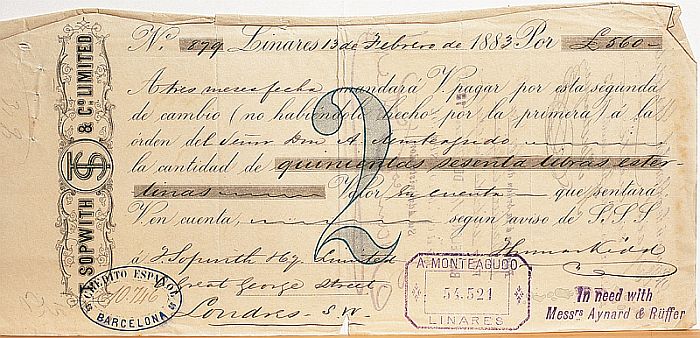 No. 879. Linares 13 de Febrero de 1883 Por £560-
A tres meses fecha mandará V. pagar por esta segunda
de cambio (no habiendolo hecho por la primera) á la
orden del Señor Don A. Monteagudo
la cantidad de quinientas sesenta libras ester-
linas Valor en cuenta que sentará
V en cuenta, segun aviso de S.S.S.
á T. Sopwith & Cy. Limited
Great George Street
Londres. S.W.
2
SOPWITH & Co. LIMITED
TS
CREDITO ESPAÑOL
BARCELONA
A. MONTEAGUDO
54.521
LINARES
In need with
Messrs Aynard & Rüffer